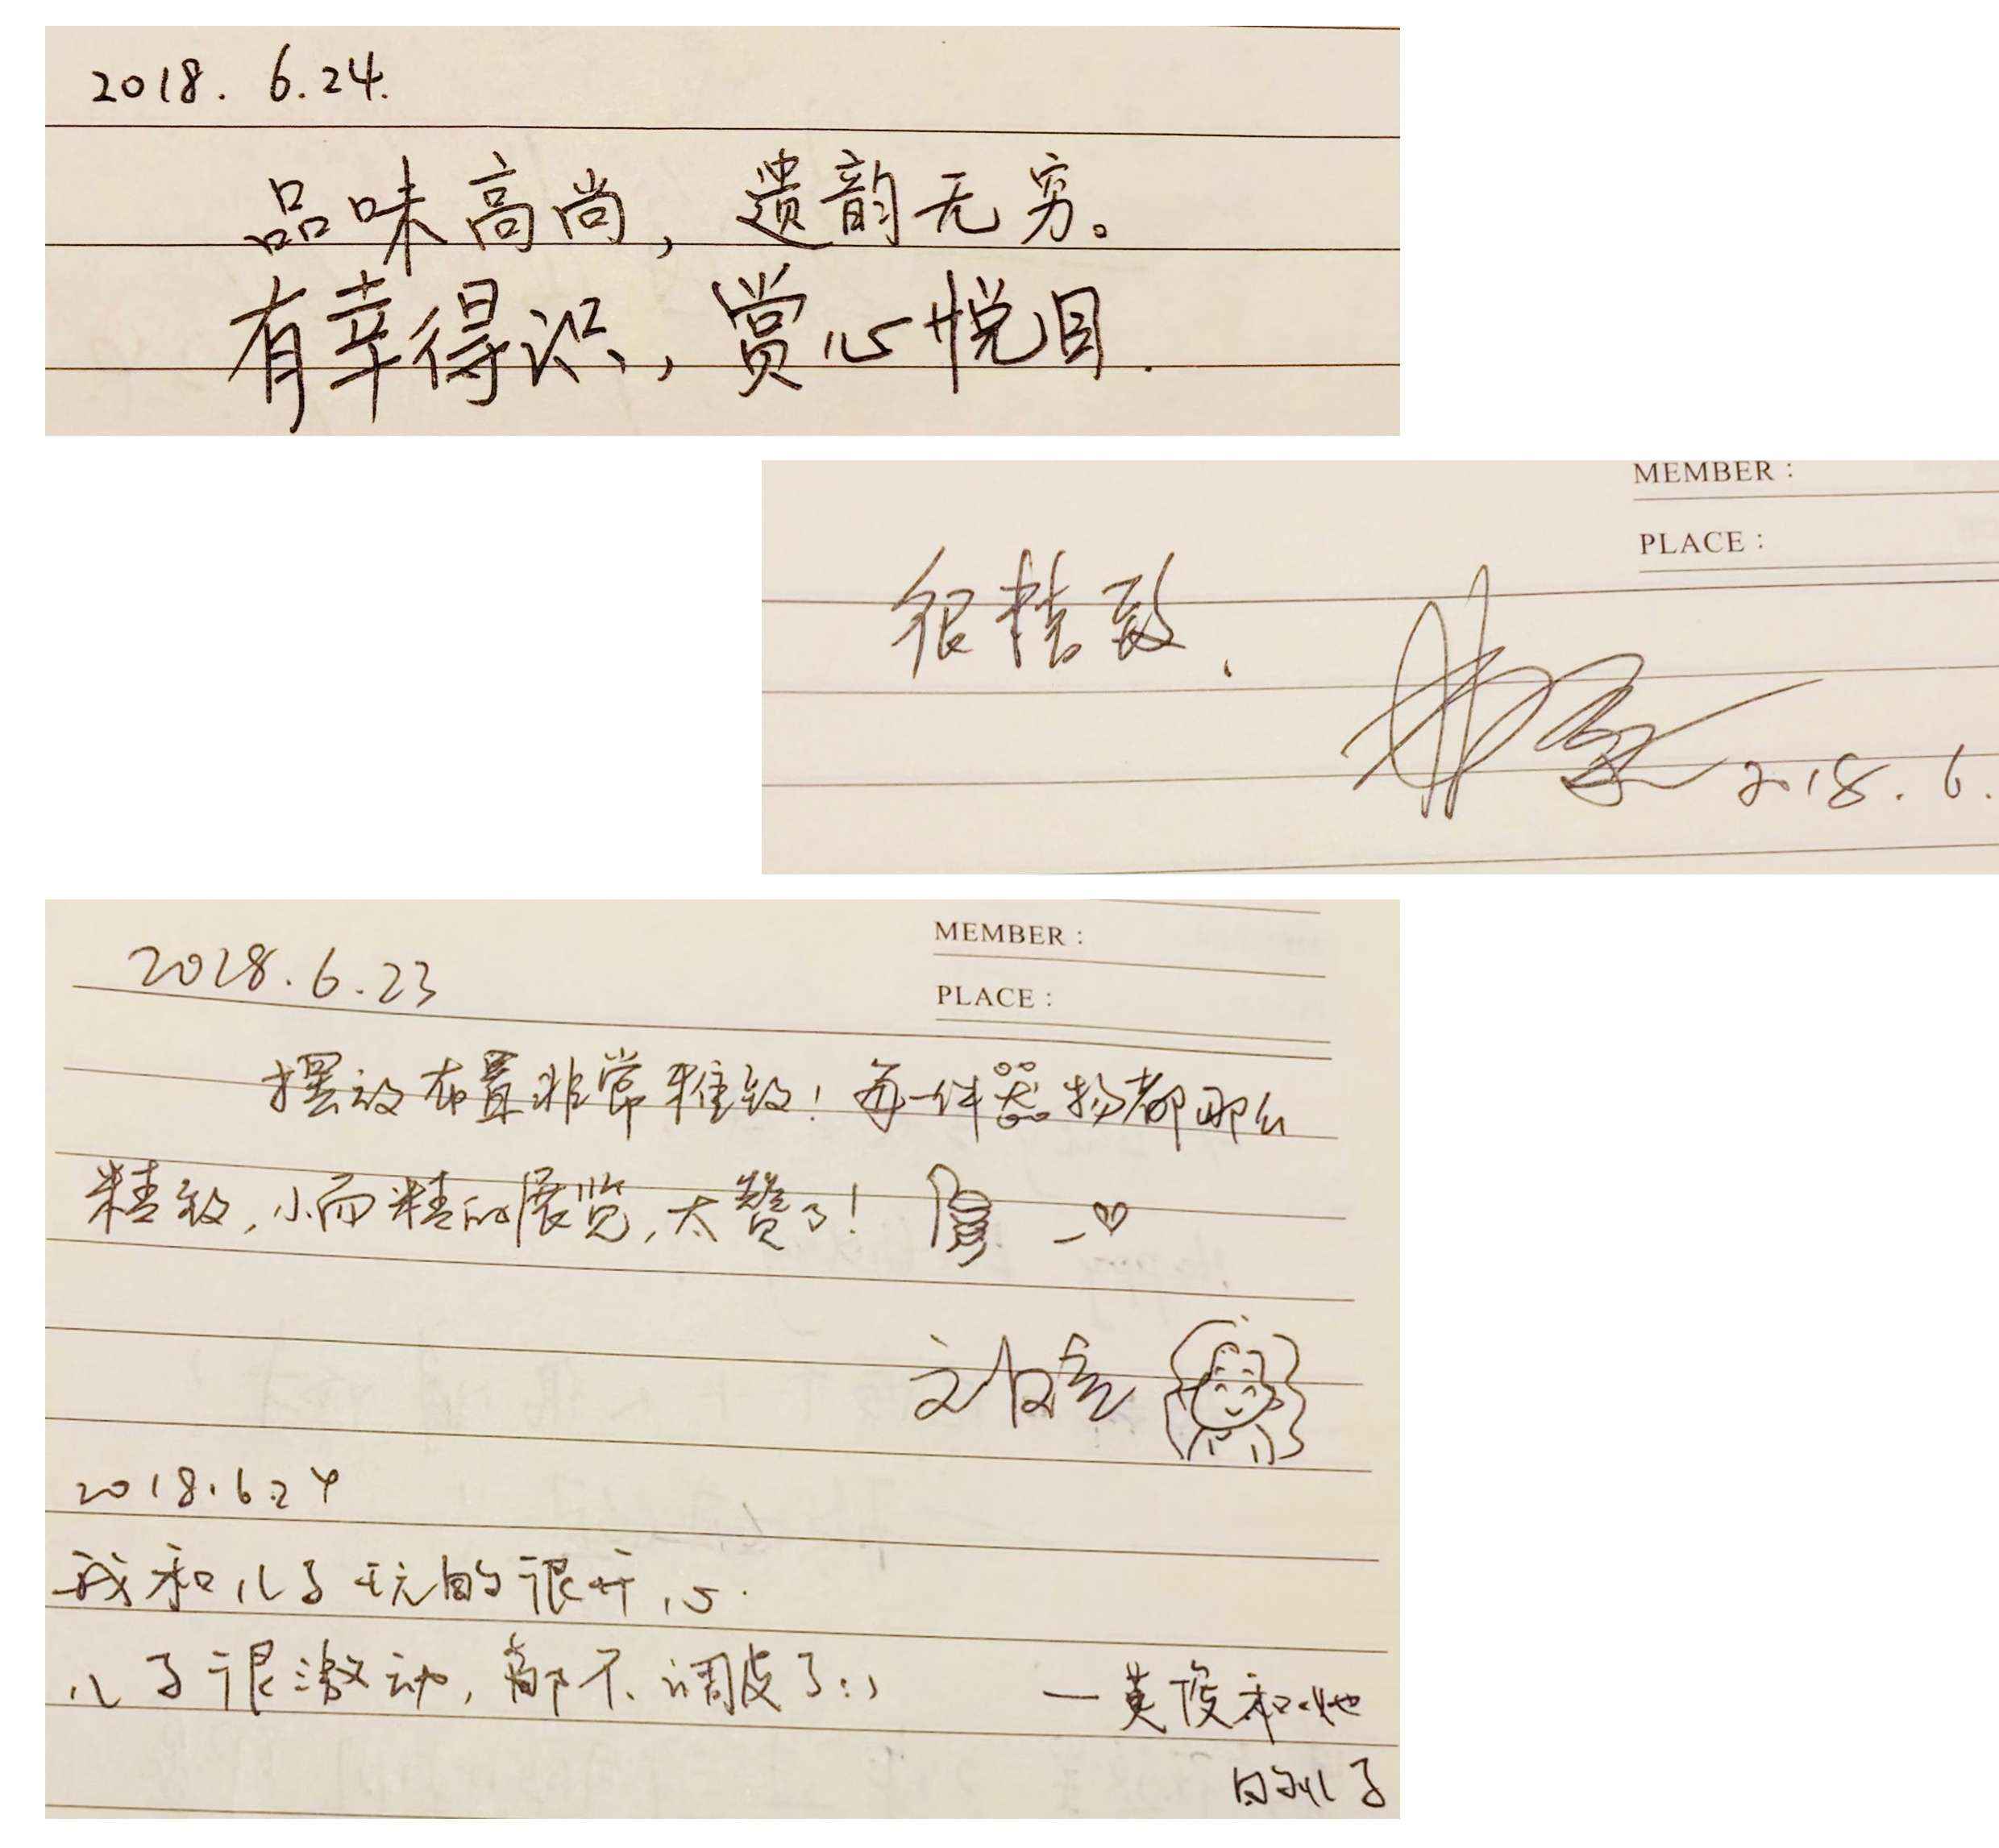 2018. 6.24.
品味高尚，遗韵无穷。
有幸得识，赏心悦目.
MEMBER :
PLACE :
很精致.
2018.6.
MEMBER :
PLACE :
2018.6.23
摆放布置非常雅致！每一件器物都那么
精致，小而精的展览，太赞了！
2018.6.24
我和儿子玩的很开心.
儿子很激动，都不调皮了:)
—英俊和她
的儿子